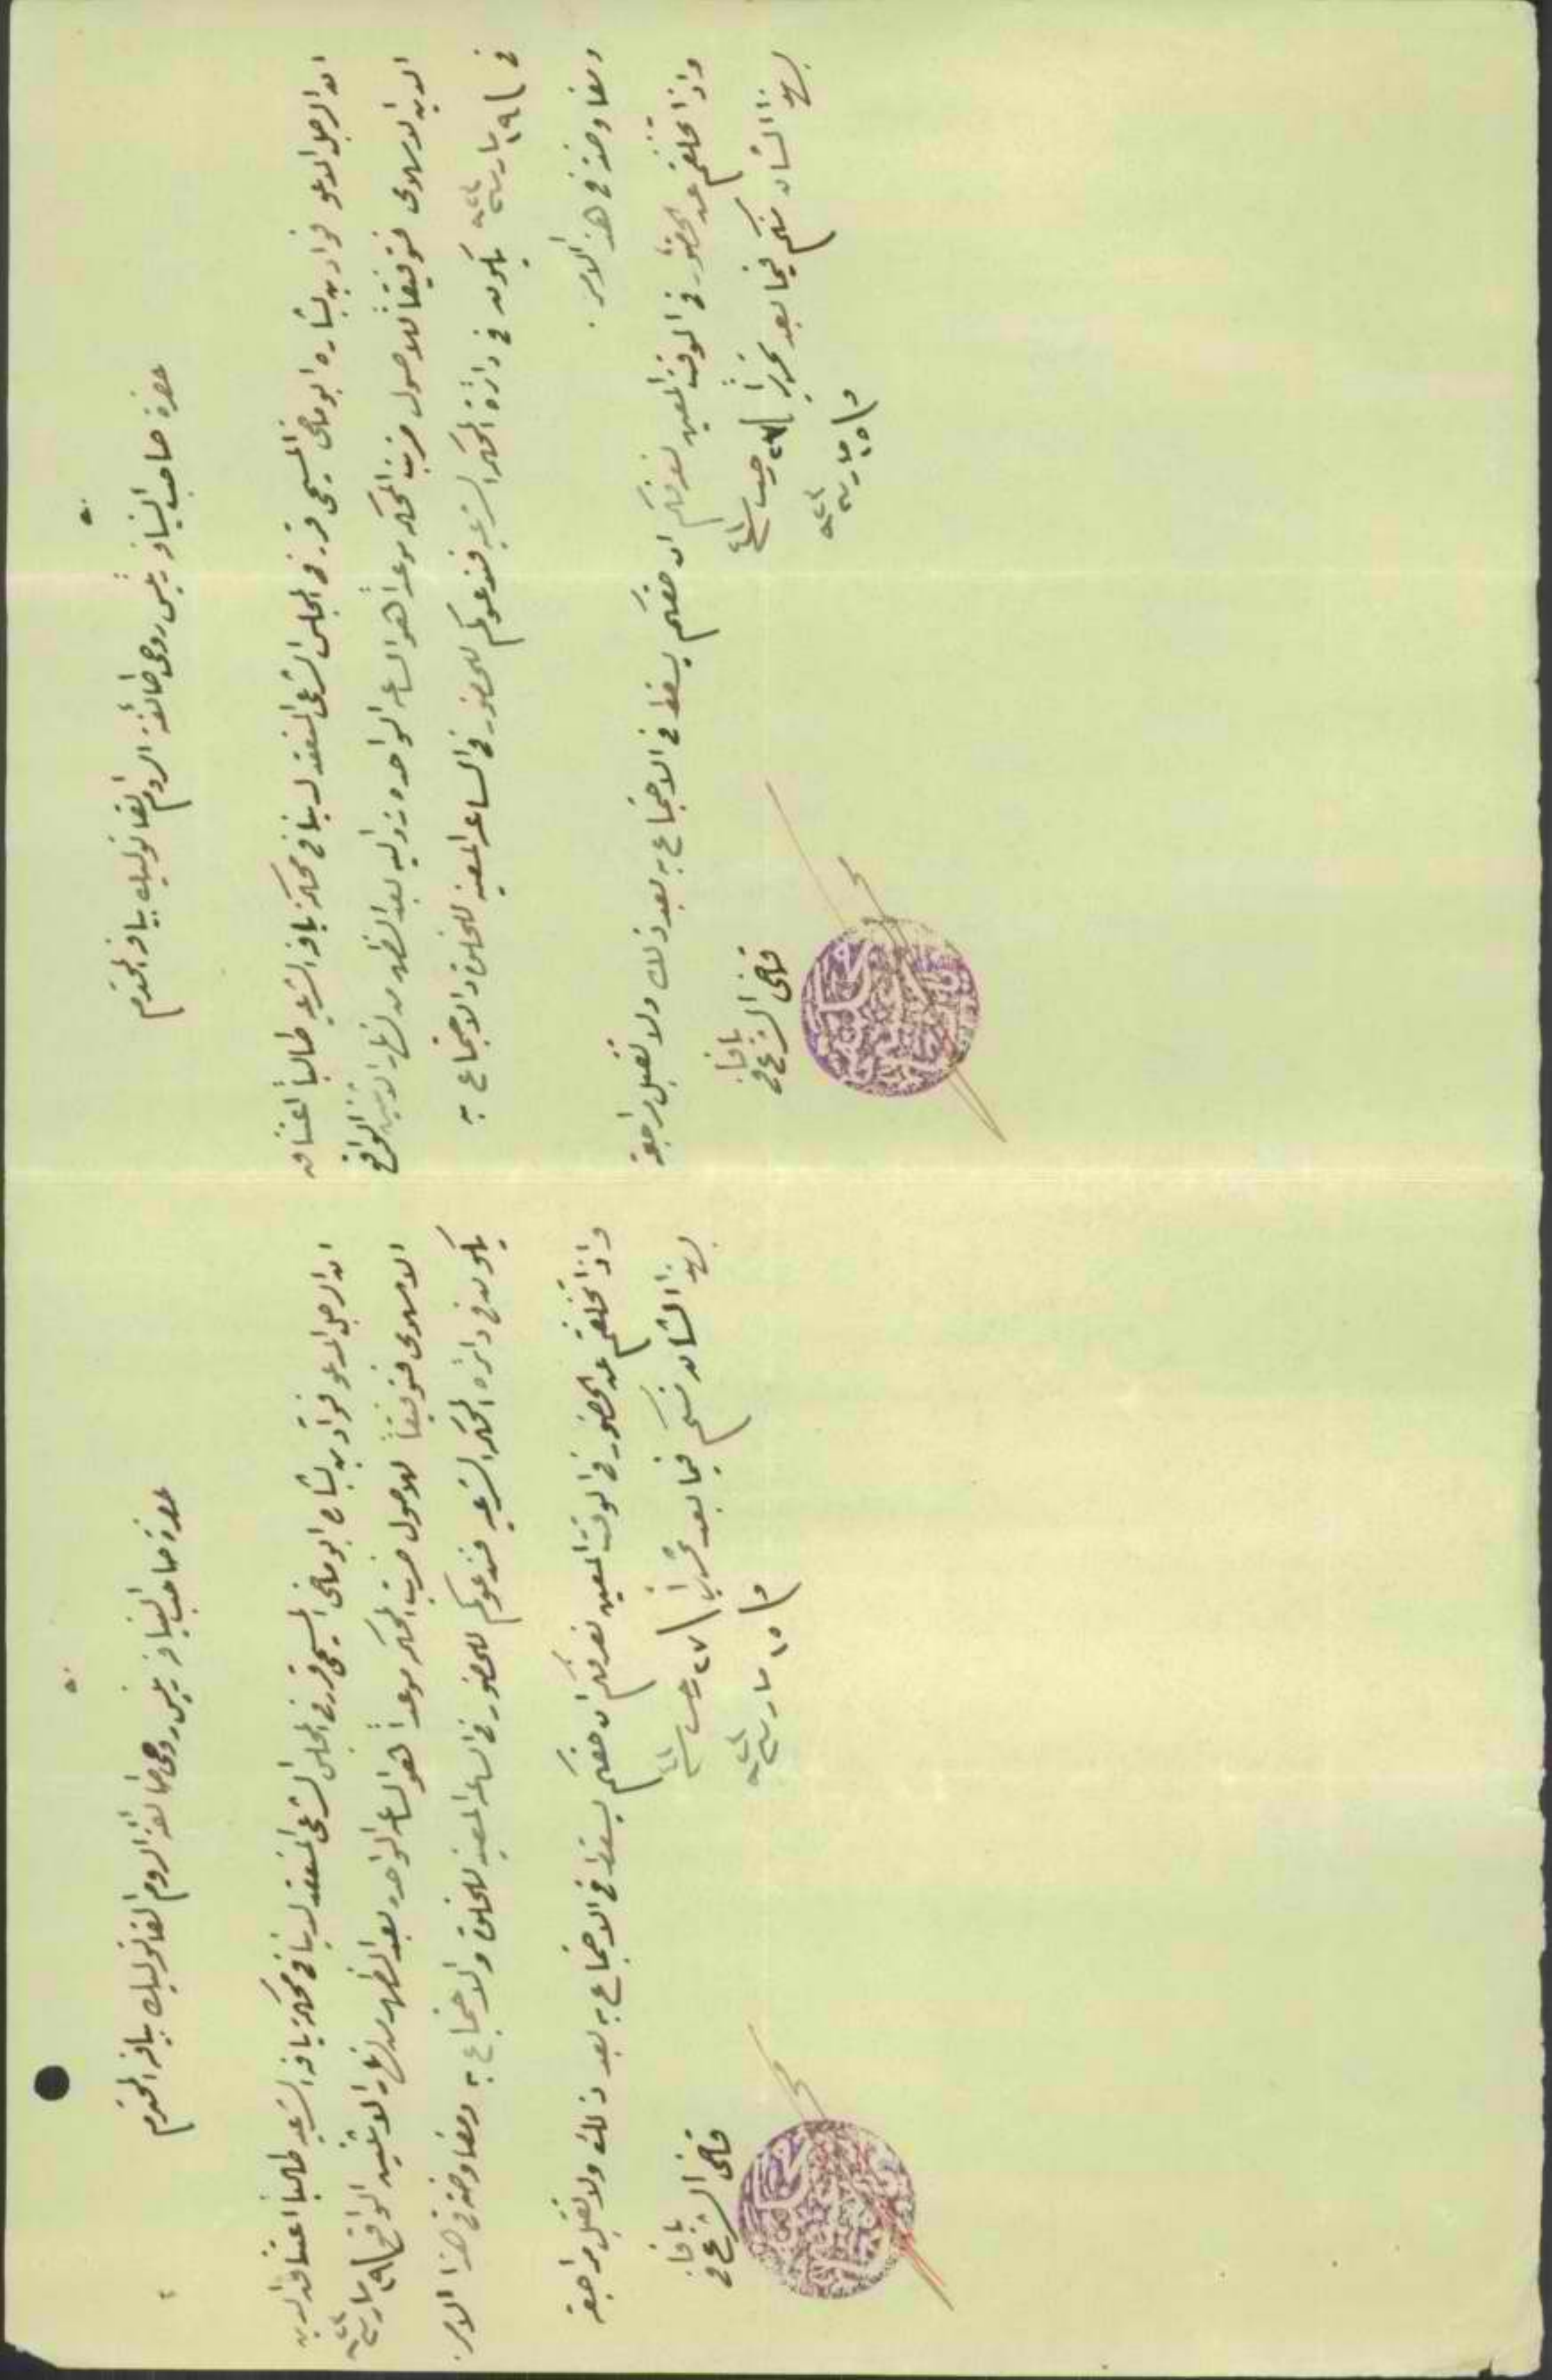 حضرة صاحب النيافة رئيس روحي طائفة الروم الكاثوليك بيافا المحترم
ان الرجل المدعو فؤاد بن بشاره ابو ماضي المسيحي قرر في المجلس الشرعي المنعقد لدينا في محكمة يافا الشرعيه طالباً اعتناق
الدين الاسلامي فتوفيقاً للاصول ضربت المحكمه موعداً هو الساعه الواحده زواليه بعد الظهر من نهار الاثنين الواقع
في ١٩ مارس يكون في دائرة المحكمه الشرعيه فندعوكم للحضور في الساعه المعينه للخلوة والاجتماع به
ومفاوضته في هذا الامر .
واذا تخلفتم عن الحضور في الوقت المعين نعرفكم ان حقكم يسقط في الاجتماع به بعد ذلك ولا تقبل مراجعة
بهذا الشان منكم فيما بعد تحريراً ٢٧ رجب
و ١٥ مارس
قاضي الشرع في
يافا
حضرة صاحب النيافة رئيس روحي طائفة الروم الكاثوليك بيافا المحترم
ان الرجل المدعو فؤاد بن بشاره ابو ماضي المسيحي قرر في المجلس الشرعي المنعقد لدينا في محكمة يافا الشرعيه طالباً اعتناق الدين
الاسلامي فتوفيقاً للاصول ضربت المحكمه موعداً هو الساعه الواحده بعد الظهر من نهار الاثنين الواقع ١٩ مارس
يكون في دائرة المحكمه الشرعيه فندعوكم للحضور في الساعه المعينه للخلوة والاجتماع به ومفاوضته في هذا الامر .
واذا تخلفتم عن الحضور في الوقت المعين نعرفكم ان حقكم يسقط في الاجتماع به بعد ذلك ولا تقبل مراجعة
بهذا الشان منكم فيما بعد تحريراً ٢٧ رجب
و ١٥ مارس
قاضي الشرع في
يافا